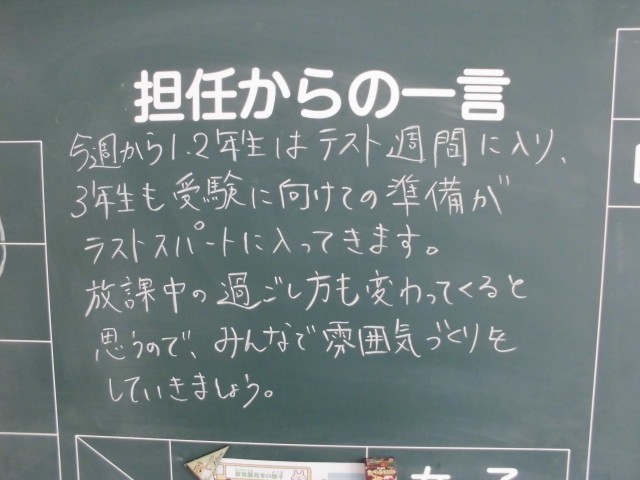 担任からの一言
今週から1.2年生はテスト週間に入り、
3年生も受験に向けての準備が
ラストスパートに入ってきます。
放課中の過ごし方も変わってくると
思うので、みんなで雰囲気づくりを
していきましょう。
女子